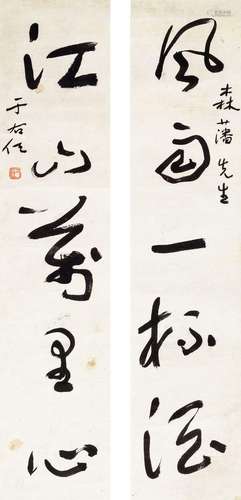 森藩先生
风雨一杯酒
江山萬里心
于右任